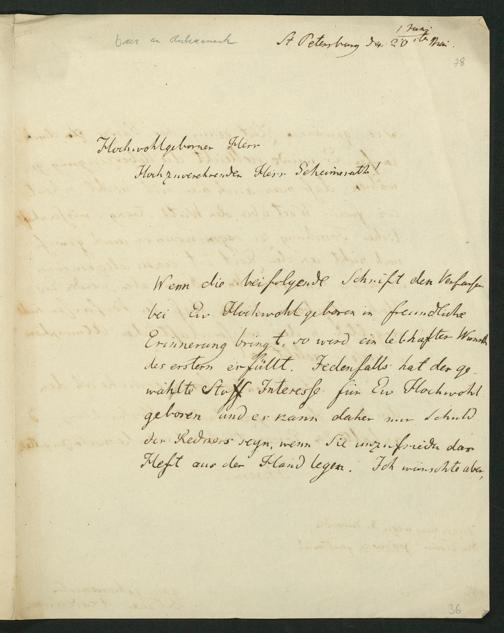 Baer an
St Petersburg d. 20sten Mai.
1 Juni
78
Hochwohlgeborner Herr
Hochzuverehrender Herr Geheimerath!
Wenn die beifolgende Schrift den Verfasser
bei Ew Hochwohlgeboren in freundliche
Erinnerung bringt, so wird ein lebhafter Wunsch
des erstern erfüllt. Jedenfalls hat der ge-
wählte Stoff Interesse für Ew Hochwohl
geboren und es kann daher nur Schuld
des Redners seyn, wenn Sie unzufrieden das
Heft aus der Hand legen. Ich wünschte aber,
36